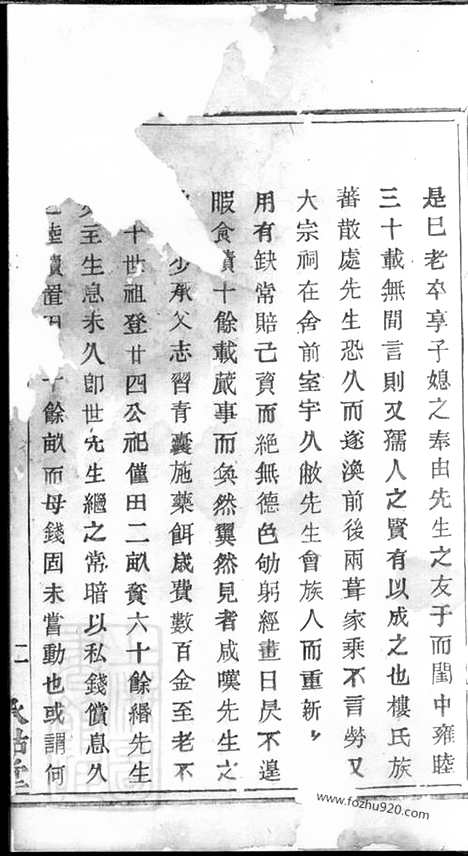 是巳老卒享子媳之奉由先生之友于而閨中雍睦
三十載無間言則又孺人之賢有以成之也樓氏族
蕃散處先生恐久而遂渙前後兩葺家乘不言勞又
大宗祠在舍前室宇久敝先生會族人而重新
用有缺常賠己資而絕無德色劬躬經畫日昃不遑
暇食積十餘載蕆事而奐然翼然見者咸嘆先生之
少承父志習青囊施藥餌歲費數百金至老不
十世祖登廿四公祀僅田二畝資六十餘緡先生
主生息未久卽世先生繼之常暗以私錢償息久
陸續置田 十餘畝而母錢固未嘗動也或謂何
二
堂
www.fozhu920.com